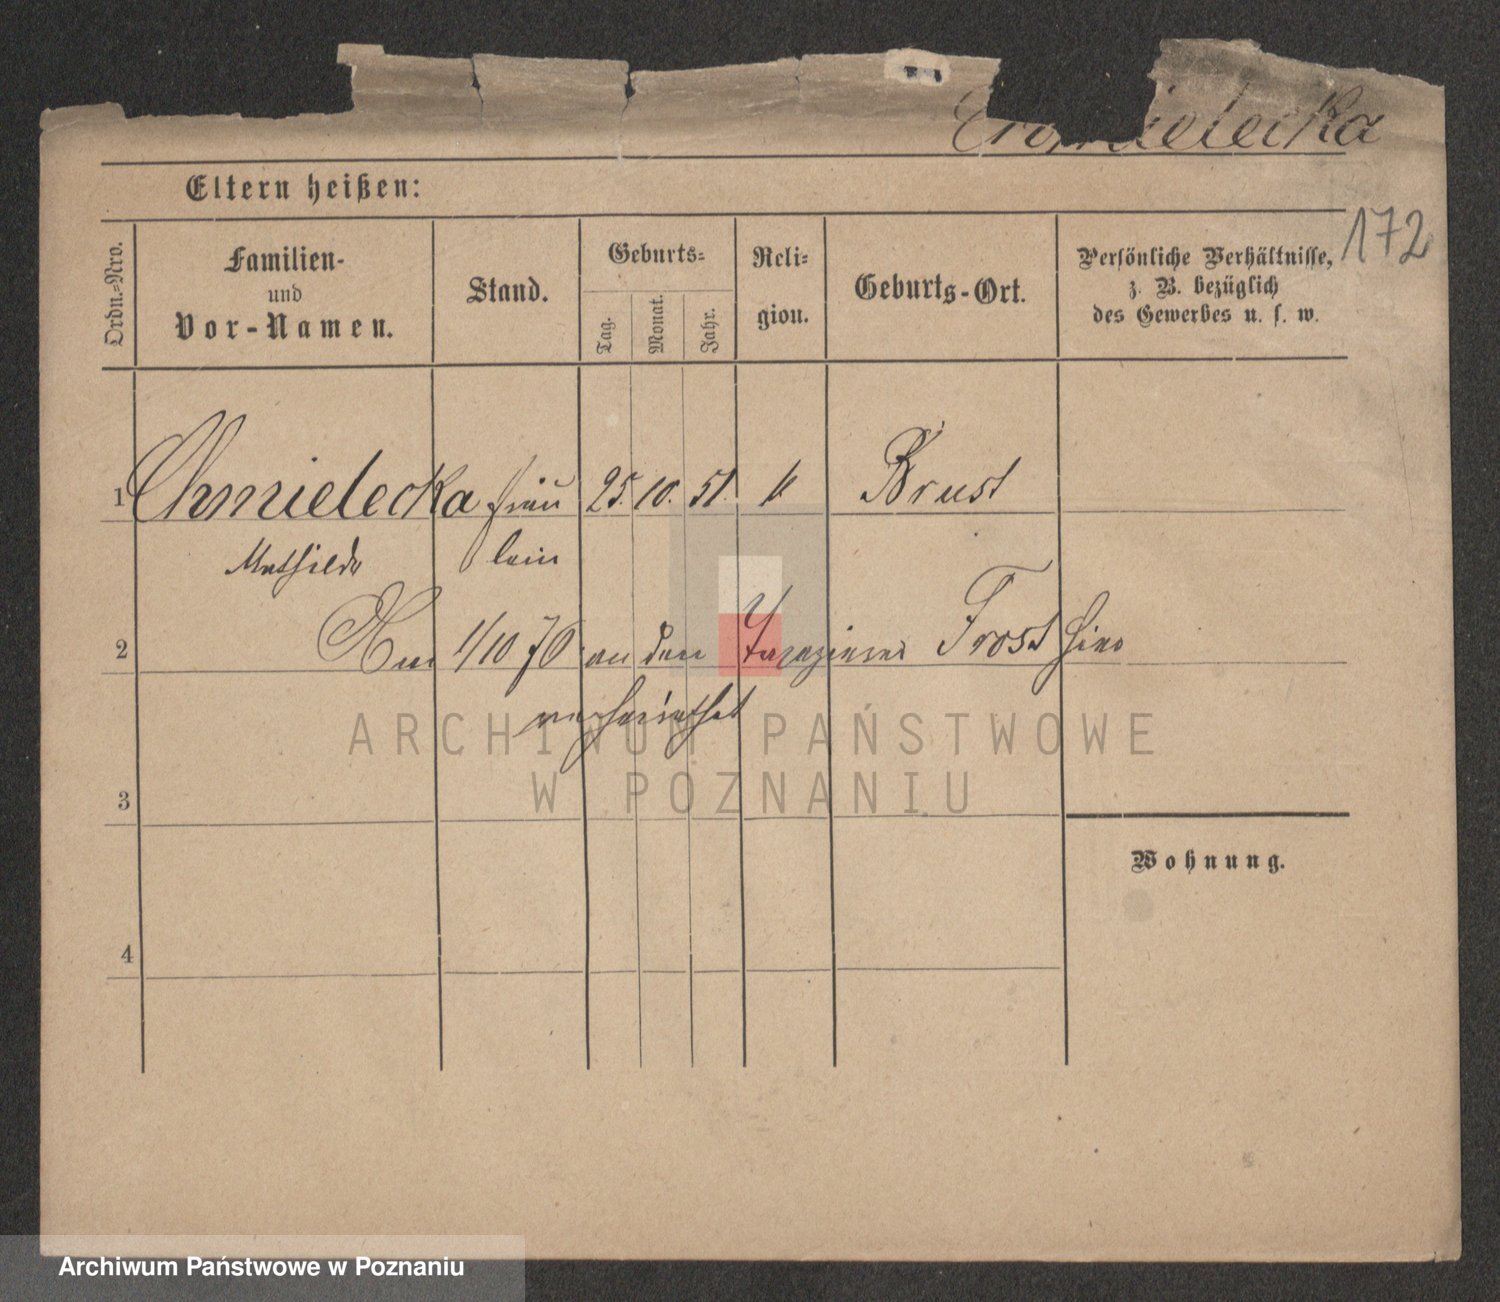 Chmielecka
172
Eltern heißen:
Ordn.-Nro.
Familien-
und
Vor-Namen.
Stand.
Geburts-
Tag.
Monat.
Jahr.
Reli-
gion.
Geburts-Ort.
Persönliche Verhältnisse,
z. B. bezüglich
des Gewerbes u. s. w.
1 Chmielecka Fräu 25. 10. 51. k Brust
Mathilde lein
2 Am 1/10 76 an den Frost hier
verheirathet
3
4
Wohnung.
ARCHIWUM PAŃSTWOWE
W POZNANIU
Archiwum Państwowe w Poznaniu